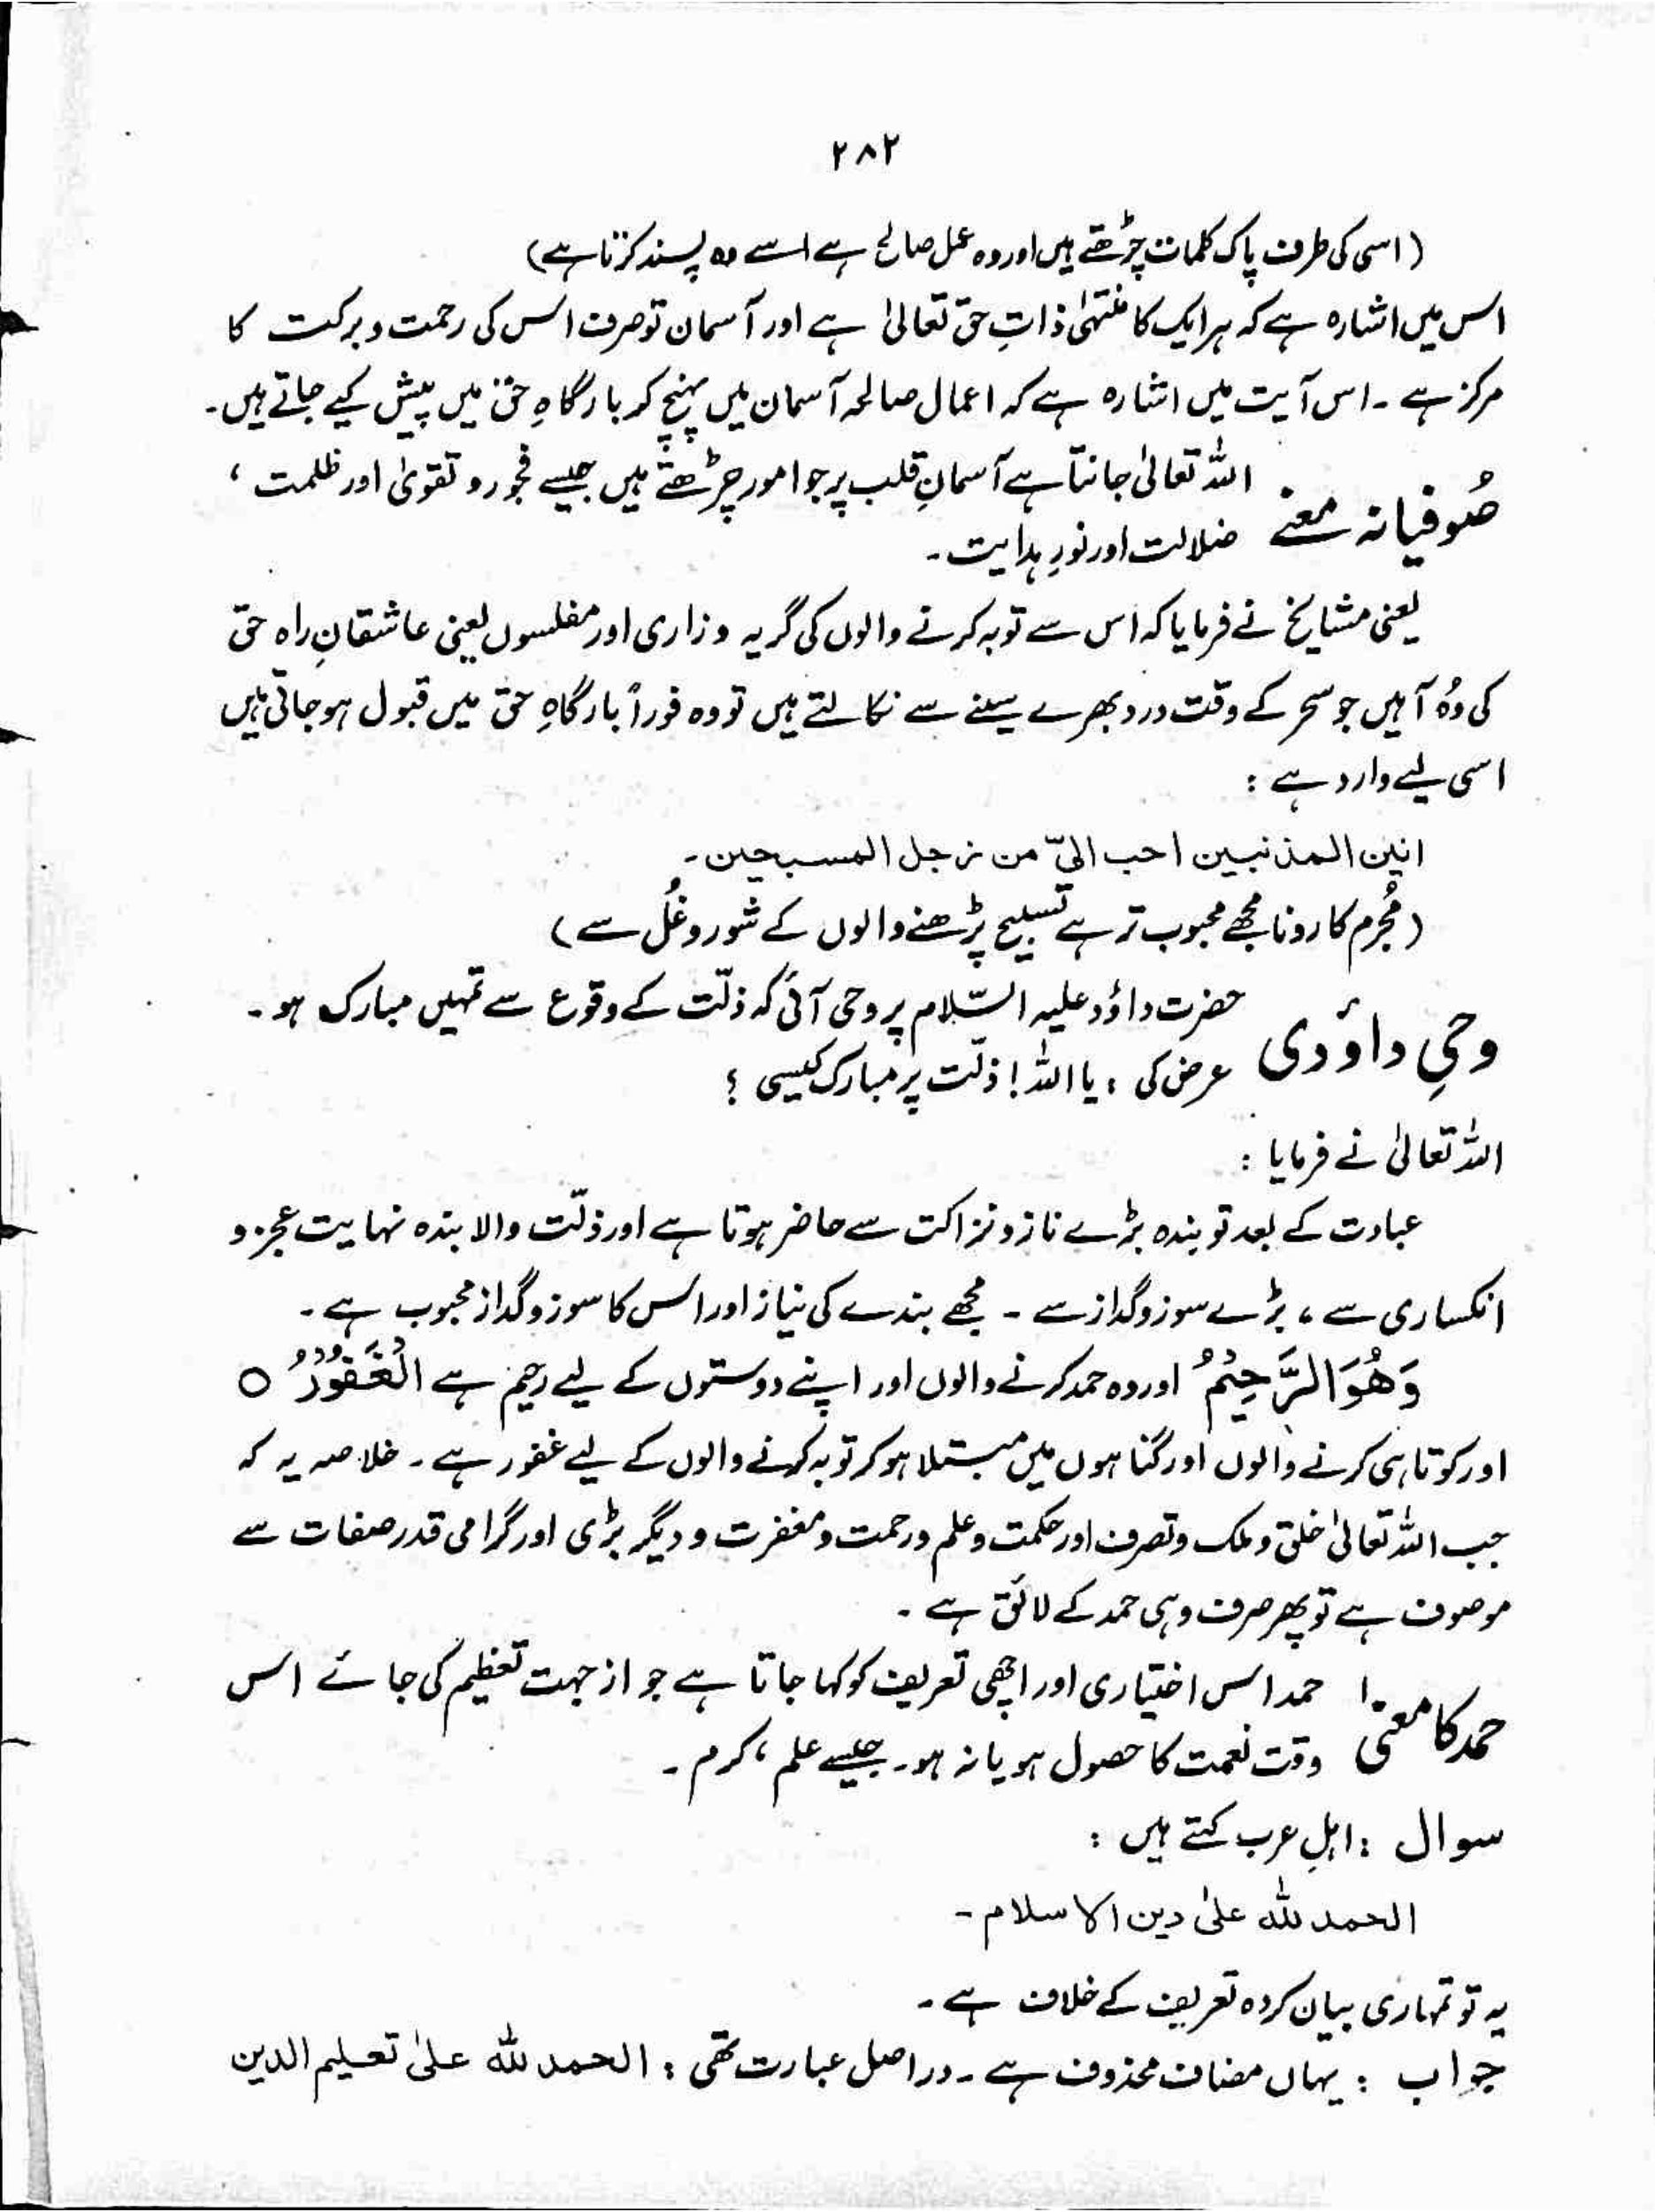 ۲۸۲
(اسی کی طرف پاک کلمات چڑھتے ہیں اور وہ عمل صالح ہے اسے وہ پسند کرتا ہے)
اس میں اشارہ ہے کہ ہر ایک کا منتہٰی ذاتِ حق تعالیٰ ہے اور آسمان تو صرف اس کی رحمت و برکت کا
مرکز ہے ۔ اس آیت میں اشارہ ہے کہ اعمال صالحہ آسمان میں پہنچ کر بارگاہِ حق میں پیش کیے جاتے ہیں۔
صُوفیانہ معنے اللہ تعالیٰ جانتا ہے آسمانِ قلب پر جو امور چڑھتے ہیں جیسے فجور و تقویٰ اور ظلمت ،
ضلالت اور نورِ ہدایت ۔
یعنی مشایخ نے فرمایا کہ اس سے توبہ کرنے والوں کی گریہ و زاری اور مفلسوں یعنی عاشقانِ راہ حق
کی وُہ آہیں جو سحر کے وقت درد بھرے سینے سے نکالتے ہیں تو وہ فوراً بارگاہِ حق میں قبول ہو جاتی ہیں
اسی لیے وارد ہے :
انین المذنبین احب الیّ من زجل المسبحین ۔
(مُجرم کا رونا مجھے محبوب تر ہے تسبیح پڑھنے والوں کے شور و غُل سے)
وحیِ داؤدی حضرت داؤد علیہ السّلام پر وحی آئی کہ ذلّت کے وقوع سے تمہیں مبارک ہو ۔
عرض کی : یا اللہ! ذلّت پر مبارک کیسی ؟
اللہ تعالیٰ نے فرمایا :
عبادت کے بعد تو بندہ بڑے ناز و نزاکت سے حاضر ہوتا ہے اور ذلّت والا بندہ نہایت عجز و
انکساری سے ، بڑے سوز و گداز سے ۔ مجھے بندے کی نیاز اور اس کا سوز و گداز محبوب ہے ۔
وَهُوَ الرَّحِیْمُ اور وہ حمد کرنے والوں اور اپنے دوستوں کے لیے رحیم ہے الْغَفُوْرُ ○
اور کوتاہی کرنے والوں اور گناہوں میں مبتلا ہو کر توبہ کرنے والوں کے لیے غفور ہے ۔ خلاصہ یہ کہ
جب اللہ تعالیٰ خلق و ملک و تصرف اور حکمت و علم و رحمت و مغفرت و دیگر بڑی اور گرامی قدر صفات سے
موصوف ہے تو پھر صرف وہی حمد کے لائق ہے ۔
حمد کا معنیٰ حمد اس اختیاری اور اچھی تعریف کو کہا جاتا ہے جو از جہت تعظیم کی جائے اس
وقت نعمت کا حصول ہو یا نہ ہو ۔ جیسے علم ، کرم ۔
سوال : اہلِ عرب کہتے ہیں :
الحمد للہ علیٰ دین الاسلام ۔
یہ تو تمہاری بیان کردہ تعریف کے خلاف ہے ۔
جواب : یہاں مضاف محذوف ہے ۔ دراصل عبارت تھی : الحمد للہ علیٰ تعلیم الدین